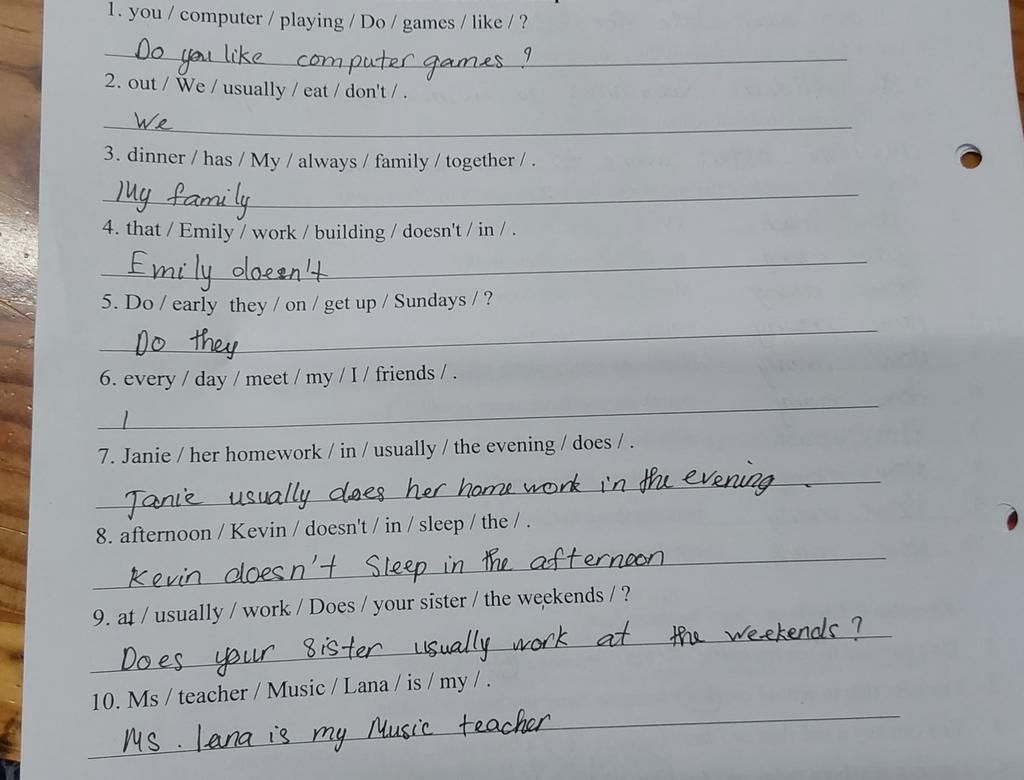 1. you / computer / playing / Do / games / like / ?
Do you like computer games ?
2. out / We / usually / eat / don't / .
We
3. dinner / has / My / always / family / together / .
My family
4. that / Emily / work / building / doesn't / in / .
Emily doesn't
5. Do / early they / on / get up / Sundays / ?
Do they
6. every / day / meet / my / I / friends / .
I
7. Janie / her homework / in / usually / the evening / does / .
Janie usually does her home work in the evening .
8. afternoon / Kevin / doesn't / in / sleep / the / .
Kevin doesn't Sleep in the afternoon
9. at / usually / work / Does / your sister / the weekends / ?
Does your sister usually work at the weekends ?
10. Ms / teacher / Music / Lana / is / my / .
Ms . lana is my Music teacher